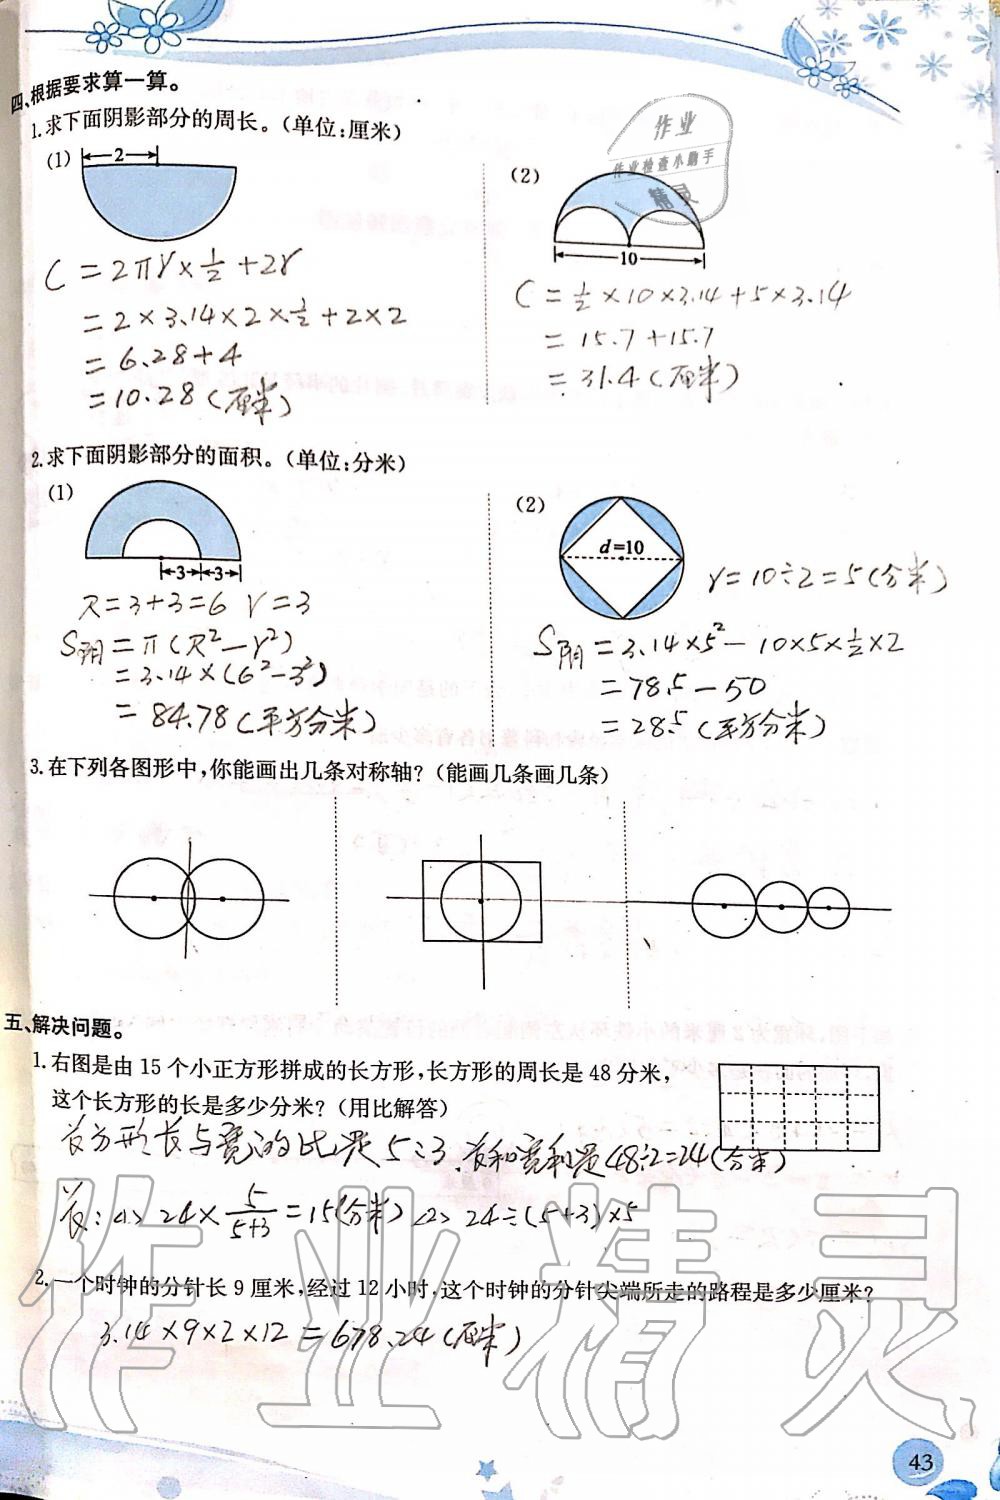 四、根据要求算一算。
1.求下面阴影部分的周长。(单位:厘米)
(1)
2
C=2πr×1/2+2r
=2×3.14×2×1/2+2×2
=6.28+4
=10.28(厘米)
(2)
10
C=1/2×10×3.14+5×3.14
=15.7+15.7
=31.4(厘米)
作业
作业检查小助手
精灵
2.求下面阴影部分的面积。(单位:分米)
(1)
3 3
R=3+3=6 r=3
S阴=π(R²-r²)
=3.14×(6²-3²)
=84.78(平方分米)
(2)
d=10
r=10÷2=5(分米)
S阴=3.14×5²-10×5×1/2×2
=78.5-50
=28.5(平方分米)
3.在下列各图形中,你能画出几条对称轴?(能画几条画几条)
五、解决问题。
1.右图是由15个小正方形拼成的长方形,长方形的周长是48分米,
这个长方形的长是多少分米?(用比解答)
长方形长与宽的比是5:3,长和宽和是48÷2=24(分米)
长:<1>24×5/(5+3)=15(分米)<2>24÷(5+3)×5
2.一个时钟的分针长9厘米,经过12小时,这个时钟的分针尖端所走的路程是多少厘米?
3.14×9×2×12=678.24(厘米)
作业精灵
43